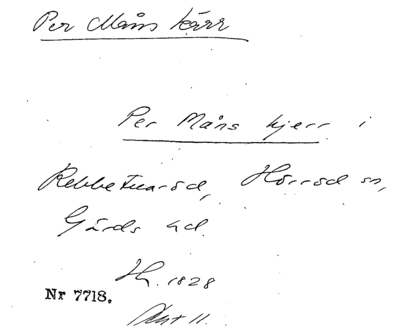 Per Måns kärr
Per Måns kjerr i
Rebbetuaröd, Hörröd sn,
Gärds hd.
Hr. 1828
Nr 7718.
Akt 11.